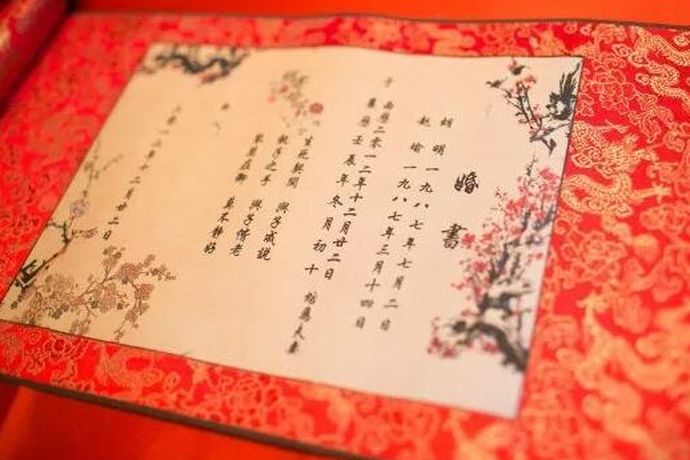 婚書
胡 明 一九八七年七月二日
赵 瑜 一九八七年三月十四日
于 西曆二零一二年十二月廿二日
農曆壬辰年冬月初十 結為夫妻
生死契闊 與子成說
執子之手 與子偕老
琴瑟在御 莫不靜好
二零一二年十二月廿二日